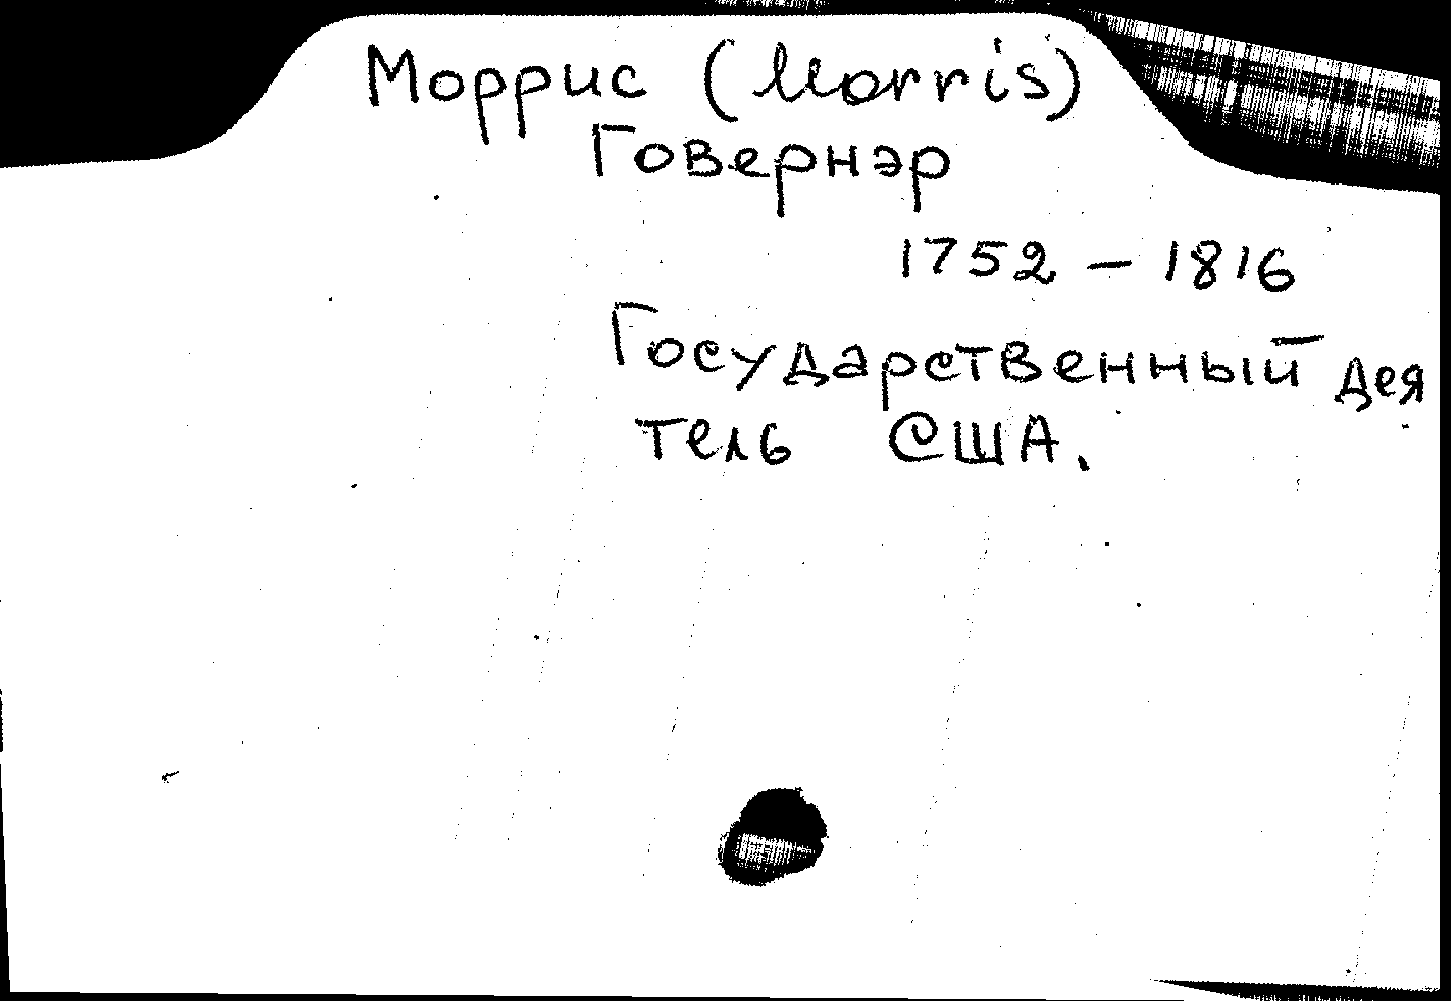 Моррис (Morris)
Говернэр
1752 – 1816
Государственный дея
тель США.